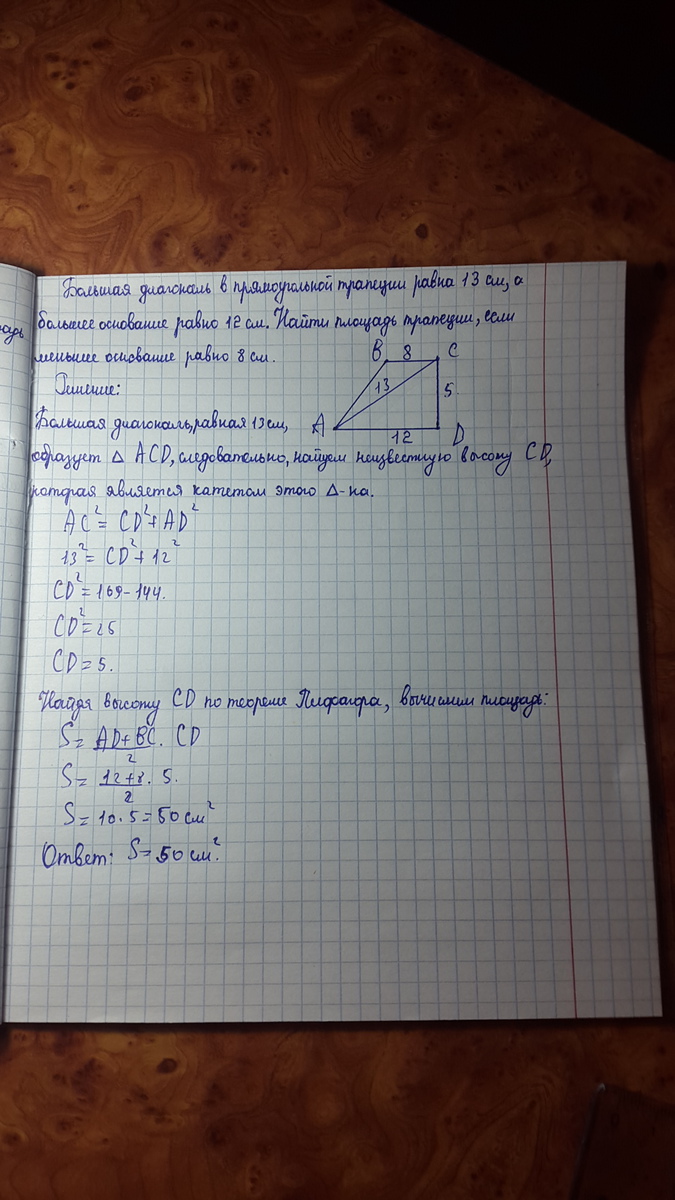 Большая диагональ в прямоугольной трапеции равна 13 см, а
большее основание равно 12 см. Найти площадь трапеции, если
меньшее основание равно 8 см.
B 8 C
Решение:
13 5
Большая диагональ, равная 13 см,
A 12 D
образует △ ACD, следовательно, найдем неизвестную высоту CD,
которая является катетом этого △-ка.
AC² = CD² + AD²
13² = CD² + 12²
CD² = 169 - 144.
CD² = 25
CD = 5.
Найдя высоту CD по теореме Пифагора, вычислим площадь:
S = AD + BC . CD
2
S = 12 + 8 . 5.
2
S = 10 . 5 = 50 см²
Ответ: S = 50 см².